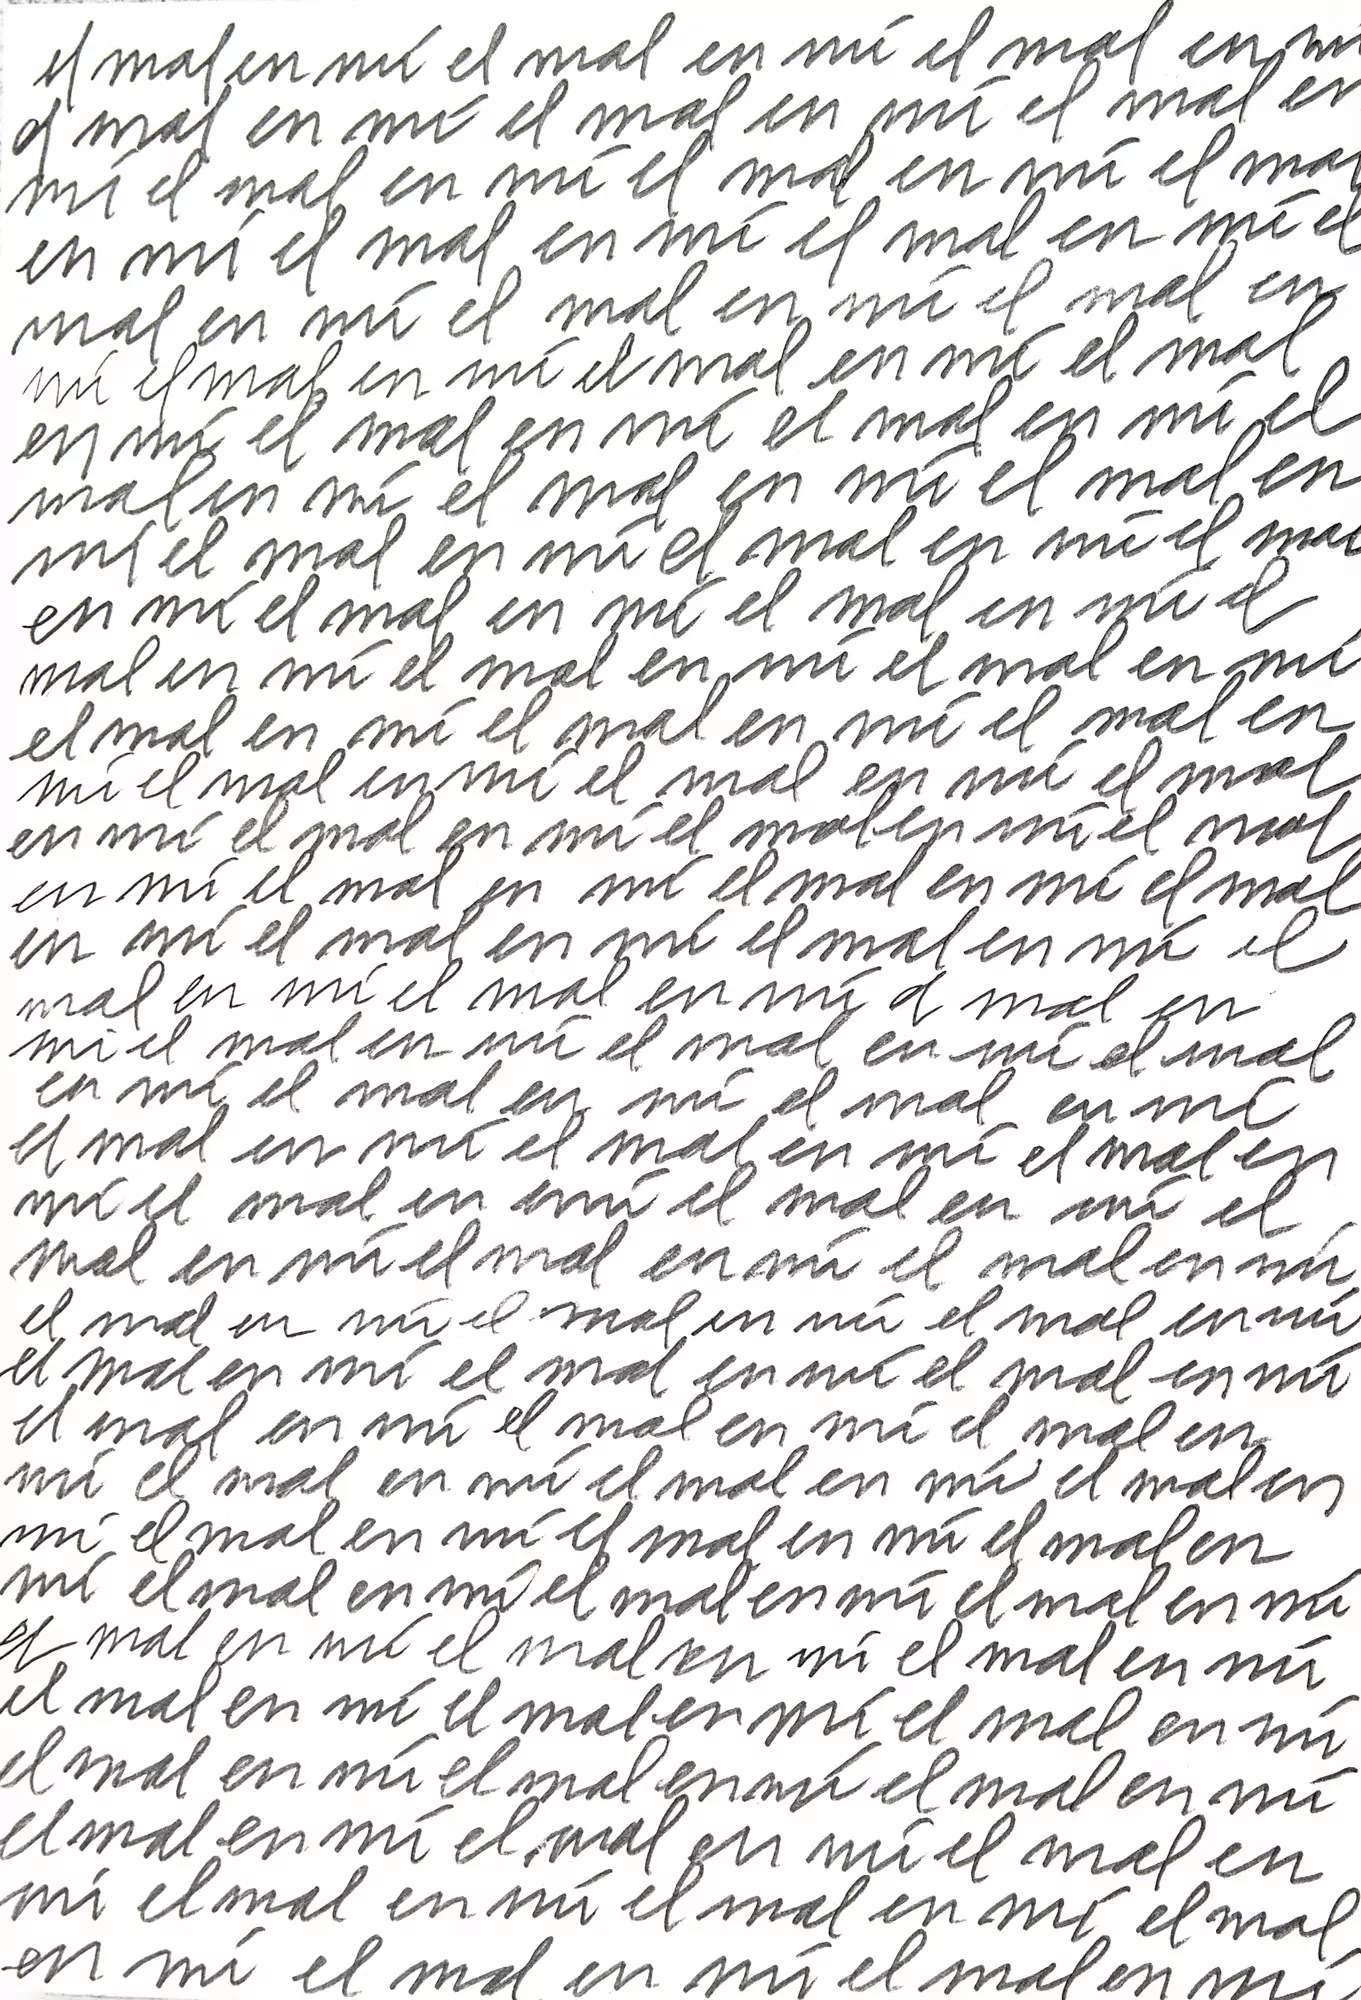 el mal en mí el mal en mí el mal en mi
el mal en mí el mal en mí el mal en
mí el mal en mí el mal en mí el mal
en mí el mal en mí el mal en mí el
mal en mí el mal en mí el mal en
mí el mal en mí el mal en mí el mal
en mí el mal en mí el mal en mí el
mal en mí el mal en mí el mal en
mí el mal en mí el mal en mí el mal
en mí el mal en mí el mal en mí el
mal en mí el mal en mí el mal en mí
el mal en mí el mal en mí el mal en
mí el mal en mí el mal en mí el mal
en mí el mal en mí el mal en mí el mal
en mí el mal en mí el mal en mí el mal
en mí el mal en mí el mal en mí el
mal en mí el mal en mí el mal en
mi el mal en mí el mal en mí el mal
en mí el mal en mí el mal en mí
el mal en mí el mal en mí el mal en
mí el mal en mí el mal en mí el
mal en mí el mal en mí el mal en mí
el mal en mí el mal en mí el mal en mí
el mal en mí el mal en mí el mal en mí
el mal en mí el mal en mí el mal en
mí el mal en mí el mal en mí el mal en
mí el mal en mí el mal en mí el mal en
mí el mal en mí el mal en mí el mal en mí
el mal en mí el mal en mí el mal en mí
el mal en mí el mal en mí el mal en mí
el mal en mí el mal en mí el mal en mí
el mal en mí el mal en mí el mal en
mí el mal en mí el mal en mí el mal
en mí el mal en mí el mal en mí